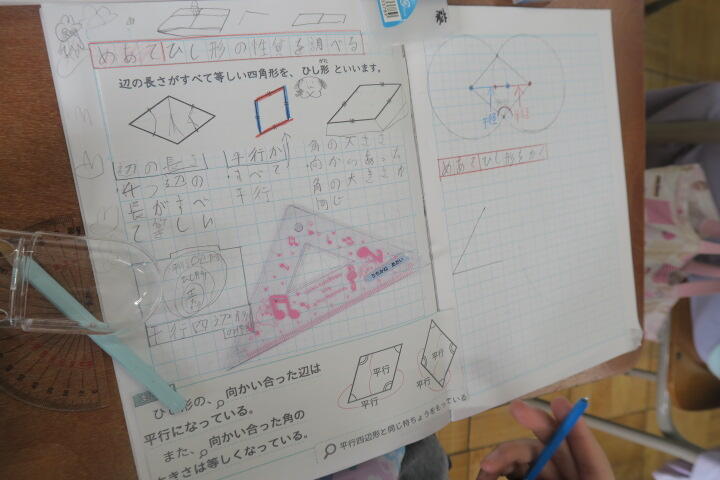 めあてひし形の性質を調べる
辺の長さがすべて等しい四角形を、ひし形といいます。
辺の長さ
4つ辺の
長がすべ
て等しい
平行か
すべて
平行
角の大きさ
角の大きさが
同じ
平行四辺形
平行
平行
平行
平行
ひし形の、向かい合った辺は
平行になっている。
また、向かい合った角の
大きさは等しくなっている。
平行四辺形と同じ特ちょうをもっている
めあてひし形をかく